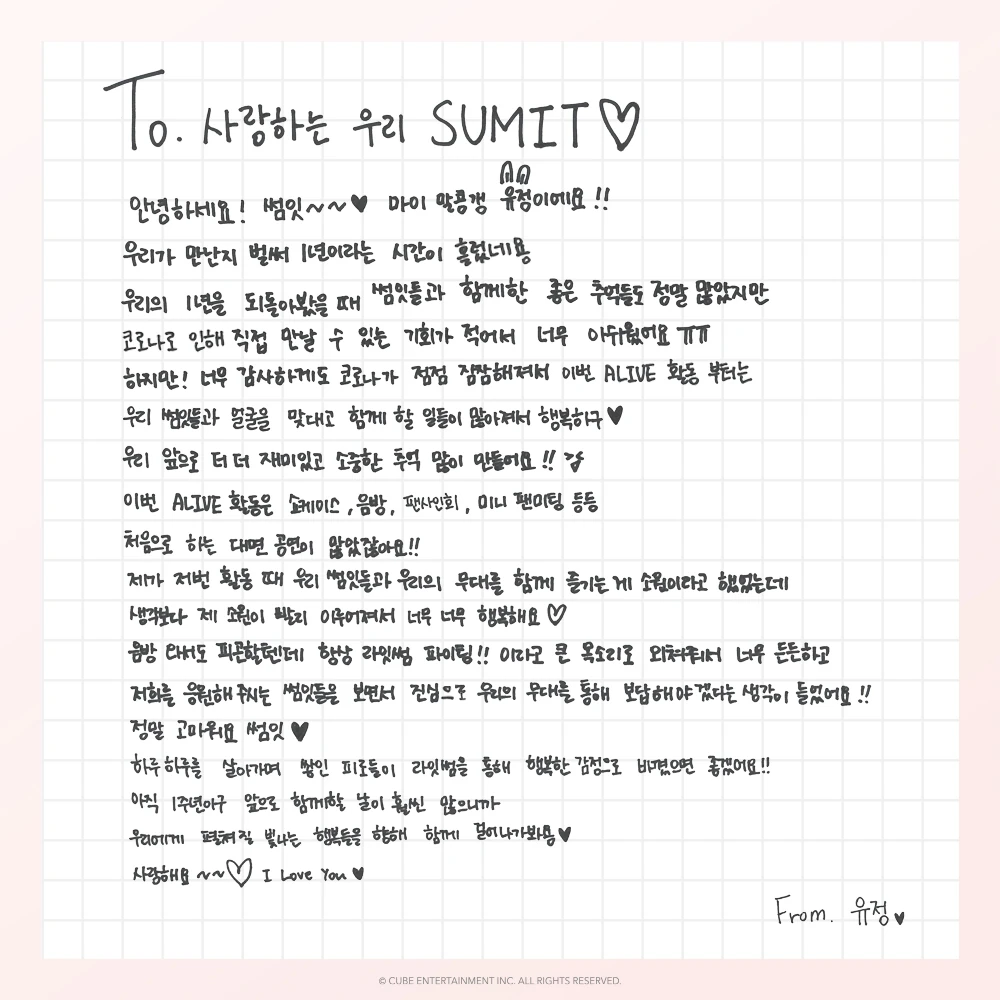 To. 사랑하는 우리 SUMIT♡
안녕하세요! 썸잇~~♥ 마이 말콩갱 유정이에요!!
우리가 만난지 벌써 1년이라는 시간이 흘렀네용
우리의 1년을 되돌아봤을 때 썸잇들과 함께한 좋은 추억들도 정말 많았지만
코로나로 인해 직접 만날 수 있는 기회가 적어서 너무 아쉬웠어요 ㅠㅠ
하지만! 너무 감사하게도 코로나가 점점 잠잠해져서 이번 ALIVE 활동 부터는
우리 썸잇들과 얼굴을 맞대고 함께 할 일들이 많아져서 행복하구♥
우리 앞으로 더 더 재미있고 소중한 추억 많이 만들어요!! 걍
이번 ALIVE 활동은 쇼케이스, 음방, 팬사인회, 미니 팬미팅 등등
처음으로 하는 대면 공연이 많았잖아요!!
제가 저번 활동 때 우리 썸잇들과 우리의 무대를 함께 즐기는게 소원이라고 했었는데
생각보다 제 소원이 빨리 이루어져서 너무 너무 행복해요♡
음방 와서도 피곤할텐데 항상 라잇썸 파이팅!! 이라고 큰 목소리로 외쳐줘서 너무 든든하고
저희를 응원해 주시는 썸잇들을 보면서 진심으로 우리의 무대를 통해 보답해야겠다는 생각이 들었어요!!
정말 고마워요 썸잇♥
하루하루를 살아가며 쌓인 피로들이 라잇썸을 통해 행복한 감정으로 바뀌었으면 좋겠어요!!
아직 1주년이구 앞으로 함께할 날이 훨씬 많으니까
우리에게 펼쳐질 빛나는 행복들을 향해 함께 걸어나가봐용♥
사랑해요~~♡ I Love You♥
From. 유정♥
© CUBE ENTERTAINMENT INC. ALL RIGHTS RESERVED.